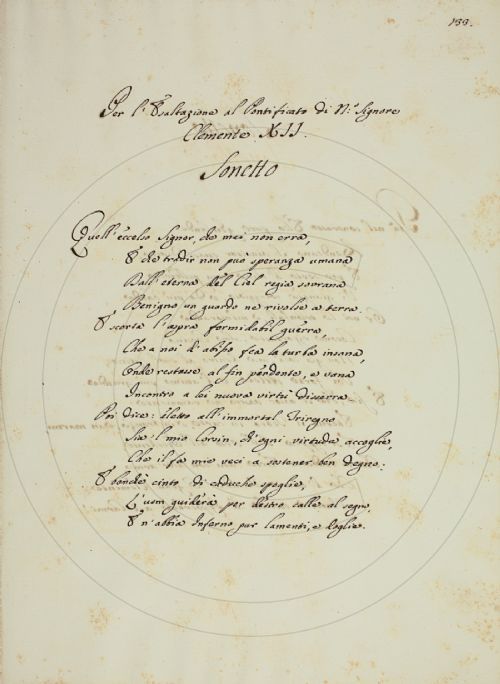 133.
Per l'Esaltazione al Pontificato di N.ro Signore
Clemente XII.
Sonetto
Quell'eccelso Signor, che mai non erra,
E che tradir non può speranza umana
Dall'eterna del Ciel regia sovrana
Benigno un guardo ne rivolse a terra.
E scorta l'aspra formidabil guerra,
Che a noi d'abisso fea la turba insana,
Onde restasse al fin perdente, e vana
Incontro a lei nuova virtù disserra.
Poi dice: eletto all'immortal Triregno
Sia 'l mio Corsin, ch'ogni virtude accoglie,
Che il fa mie veci a sostener ben degno:
E benchè cinto di caduche spoglie,
L'uom guiderà per destro calle al segno,
E n'abbia Inferno pur lamenti, e doglie.